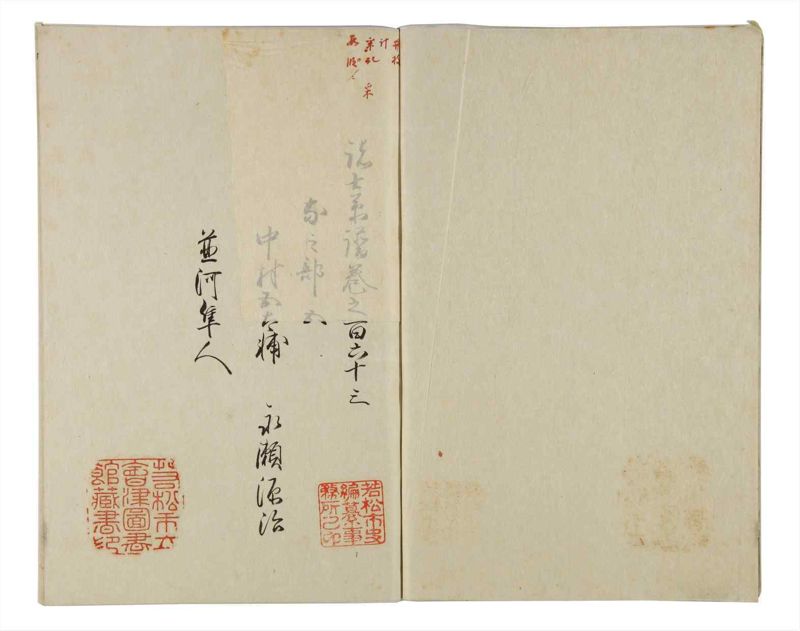 諸士系譜巻之百六十三
な之部五
中村五太輔 永瀬源治
並河隼人
若松市史
編纂事
務所之印
若松市立
會津圖書
館藏書印